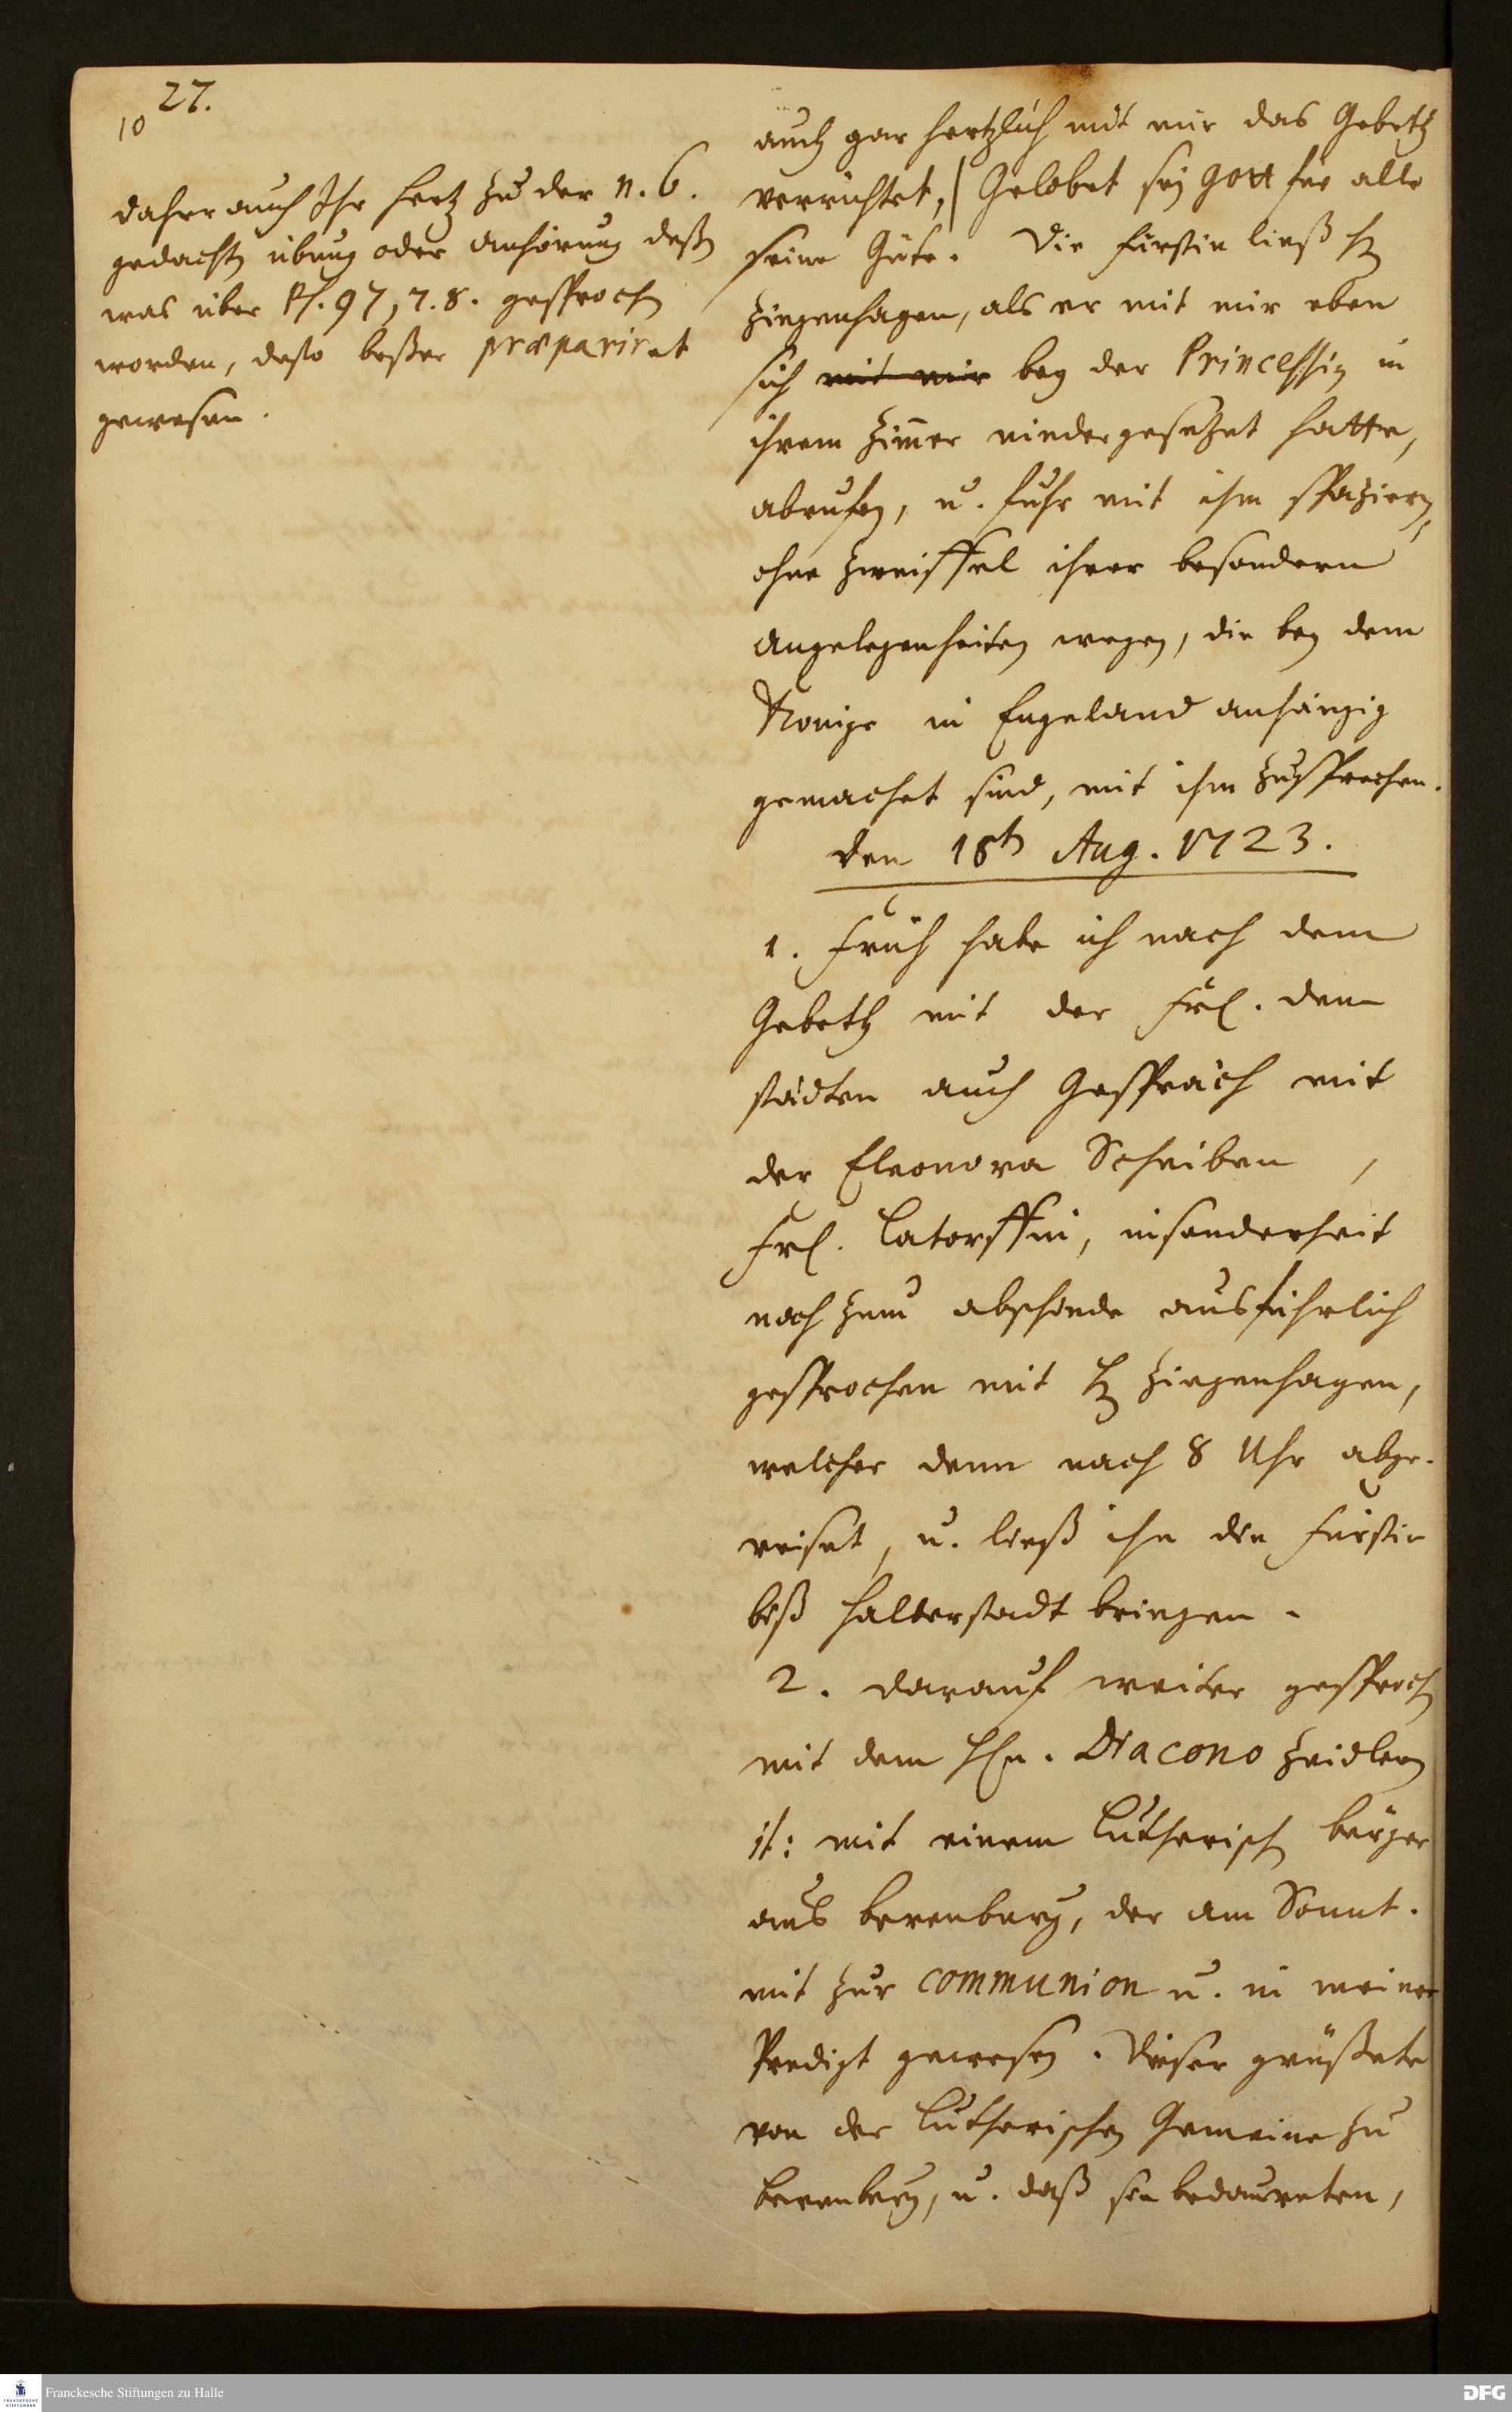 27.
10
daher auch Ihr Hertz zu der n. 6.
gedachten übung oder anhörung deßen
was über Ps. 97, 7. 8. gesprochen
worden, desto beßer præpariret
gewesen.
auch gar hertzlich mit mir das Gebeth
verrichtet, Gelobet sey Gott für alle
seine Güte. Die Fürstin ließ H.
Ziegenhagen, als er mit mir eben
sich mit mir bey der Princessin in
ihrem Zimmer niedergesetzet hatte,
abrufen, u. fuhr mit ihm spaziern,
ohne Zweiffel ihrer besondern
Angelegenheiten wegen, die bey dem
Könige in Engeland anhängig
gemachet sind, mit ihm zu sprechen.
den 18ten Aug. 1723.
1. Früh habe ich nach dem
Gebeth mit der Frl. denn
städten auch Gespräch mit
der Eleonora Scheiben,
Frl. Latorffin, insonderheit
noch zum abschiede ausführlich
gesprochen mit H. Ziegenhagen,
welcher denn nach 8 Uhr abge-
reiset, u. ließ ihn die Fürstin
biß Halberstadt bringen.
2. Darauf weiter gesprochen
mit dem Hn. Diacono Zeidlern
it: mit einem Lutherischen bürger
aus Berenburg, der am Sonnt.
mit zur communion u. in meiner
Predigt gewesen. Dieser grüßete
von der Lutherischen Gemeine zu
Berenburg, u. daß sie bedaureten,
Franckesche Stiftungen zu Halle
DFG